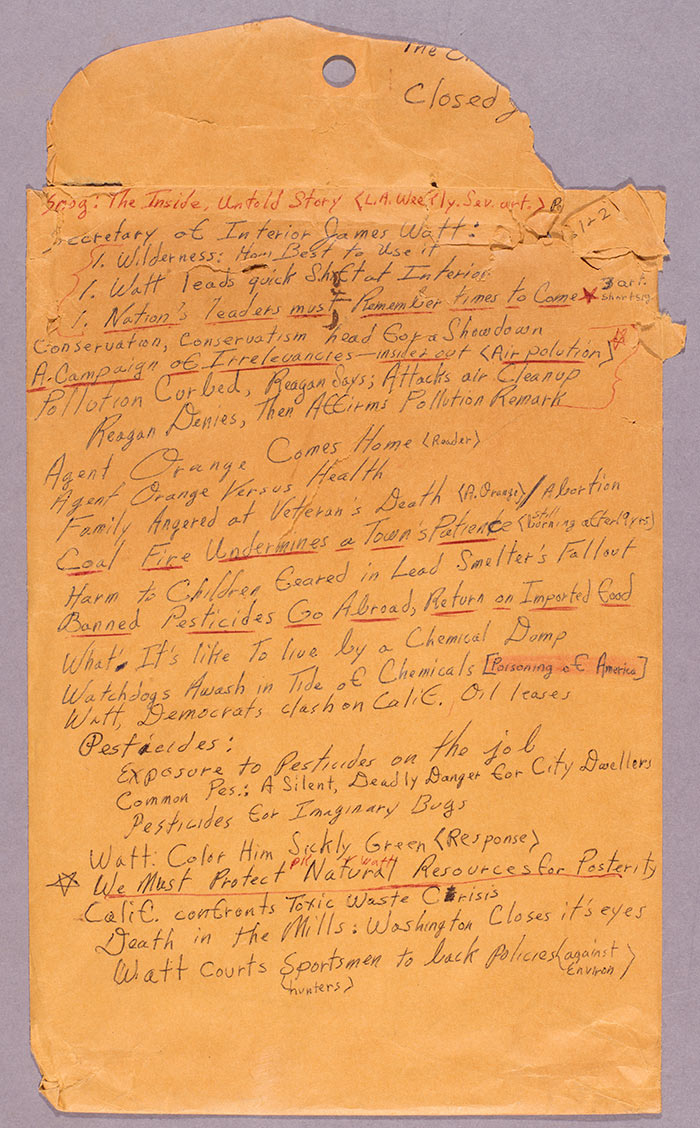 The
Closed
Smog: The Inside, Untold Story (L.A. Weekly. Sev. art.)
21+21
Secretary of Interior James Watt:
1. Wilderness: How Best to Use it
1. Watt leads quick Shift at Interior
1. Nation's leaders must Remember times to Come ★ 3 art.
Conservation, Conservatism head for a Showdown
A Campaign of Irrelevancies—insider out (Air polution)
Pollution Curbed, Reagan Says; Attacks air Cleanup
Reagan Denies, Then Affirms Pollution Remark
Agent Orange Comes Home (Reader)
Agent Orange Versus Health
Family Angered at Veteran's Death (A. Orange) / Abortion
Coal Fire Undermines a Town's Patience (still burning after 19 yrs)
Harm to Children feared in Lead Smelter's Fallout
Banned Pesticides Go Abroad, Return on Imported food
What It's like To live by a Chemical Dump
Watchdogs Awash in Tide of Chemicals [Poisoning of America]
Watt, Democrats clash on Calif. Oil leases
Pesticides:
Exposure to Pesticides on the job
Common Pes.: A Silent, Deadly Danger for City Dwellers
Pesticides for Imaginary Bugs
Watt: Color Him Sickly Green (Response)
☆ We Must Protect Natural Resources for Posterity
Watt
Calif. confronts Toxic Waste Crisis
Death in the Mills: Washington Closes it's eyes
Watt Courts Sportsmen to back policies (against Environ)
(hunters)